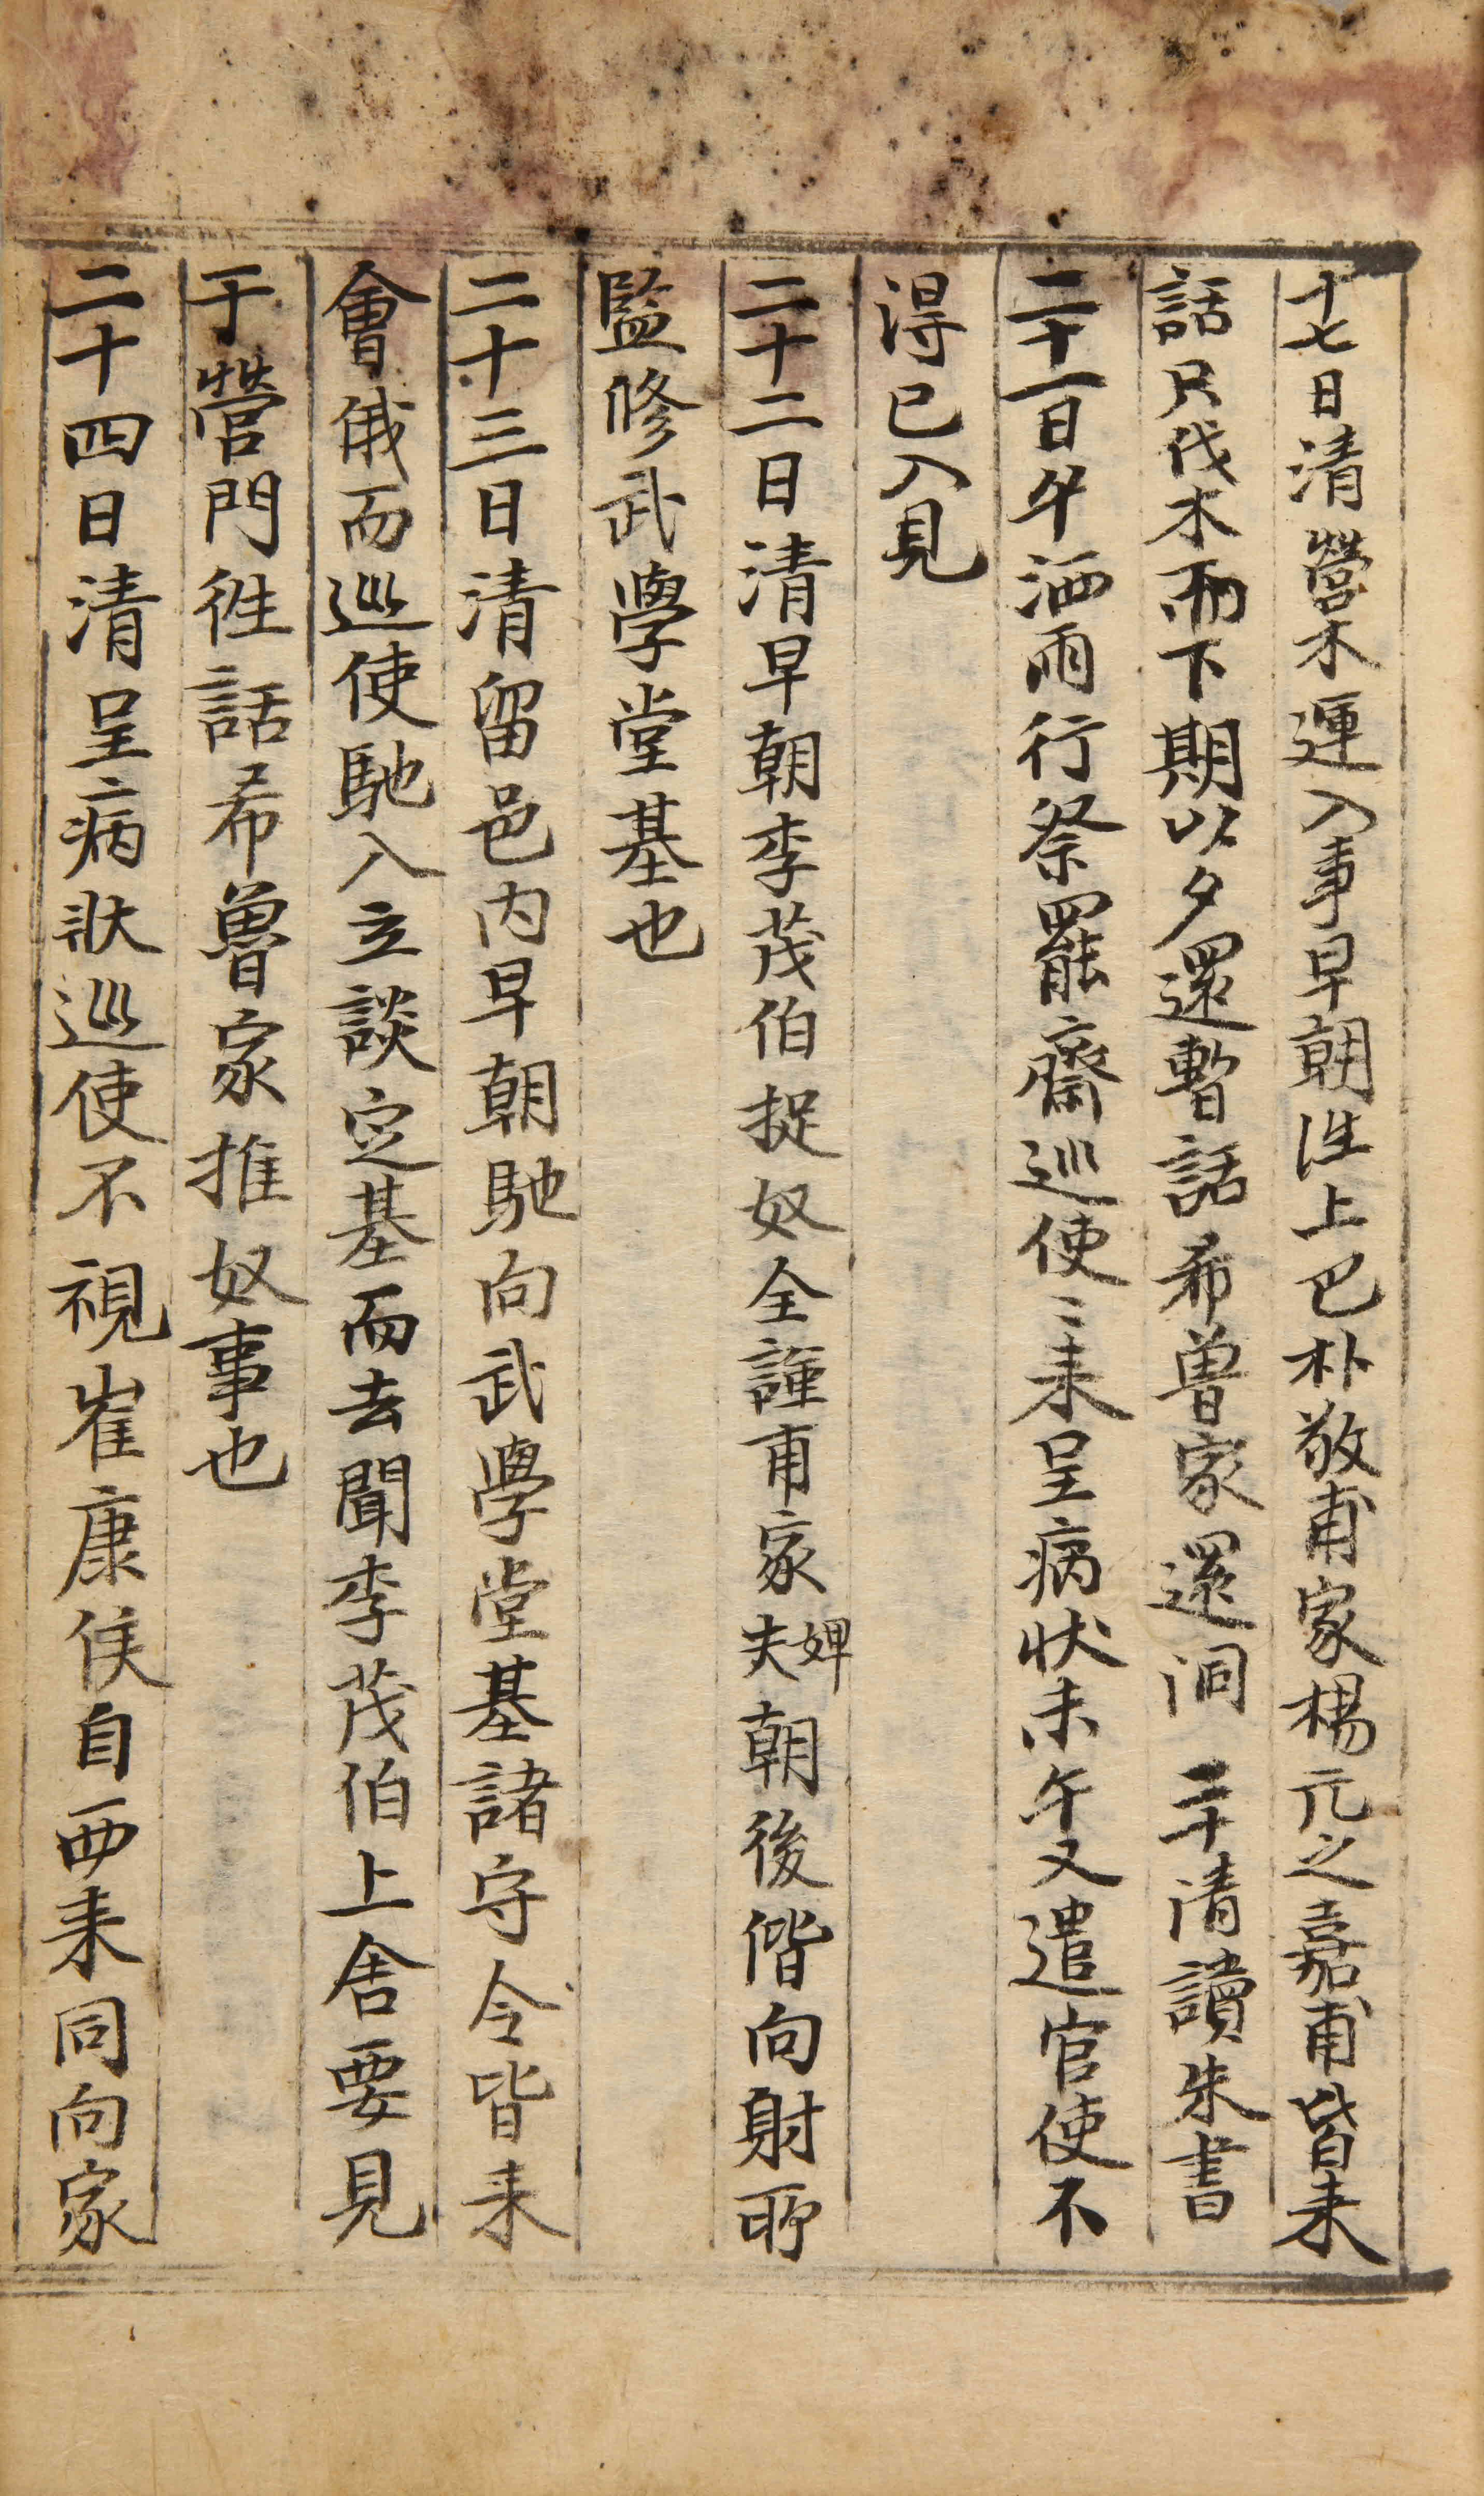 十七日清營木運入事早朝往上巴朴敬甫家楊元之嘉甫皆来
話只伐木而下期以夕還暫話希魯家還洞 二十清讀朱書
二十一日午洒雨行祭罷齋巡使〻来呈病状未午又遣官使不
得已入見
二十二日清早朝李茂伯捉奴全謹甫家婢夫朝後偕向射所
監修武學堂基也
二十三日清留邑内早朝馳向武學堂基諸守令皆来
會俄而巡使馳入立談定基而去聞李茂伯上舍要見
于營門徃話希魯家推奴事也
二十四日清呈病狀巡使不視崔康侯自西来同向家